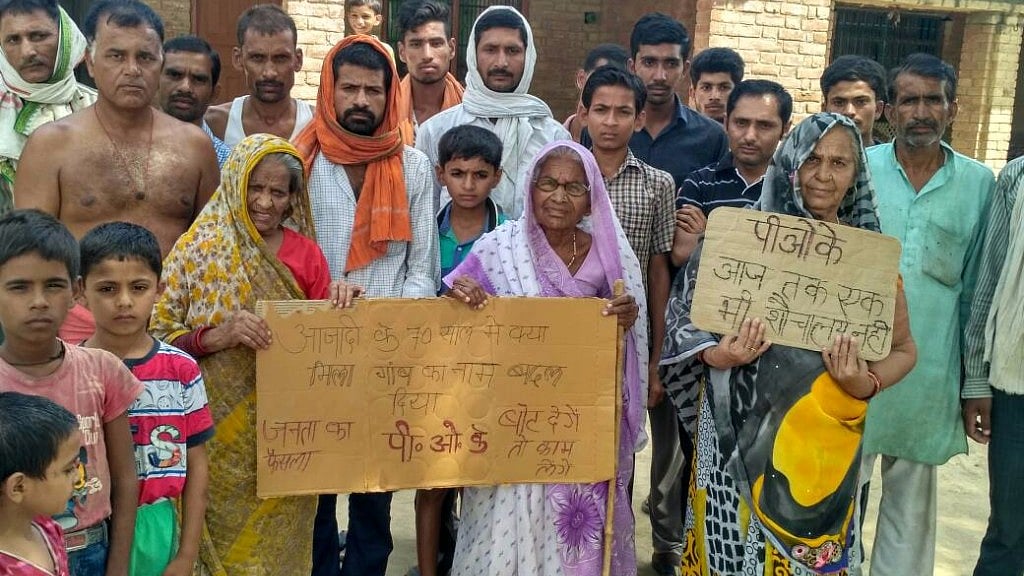 आजादी के 70 साल मे क्या
मिला गाँव का नाम बदल
दिया
जनता का
फैसला
पी॰ओ॰के
वोट देगें
तो काम
लेगे
पीओके
आज तक एक
भी शौचालय नहीं